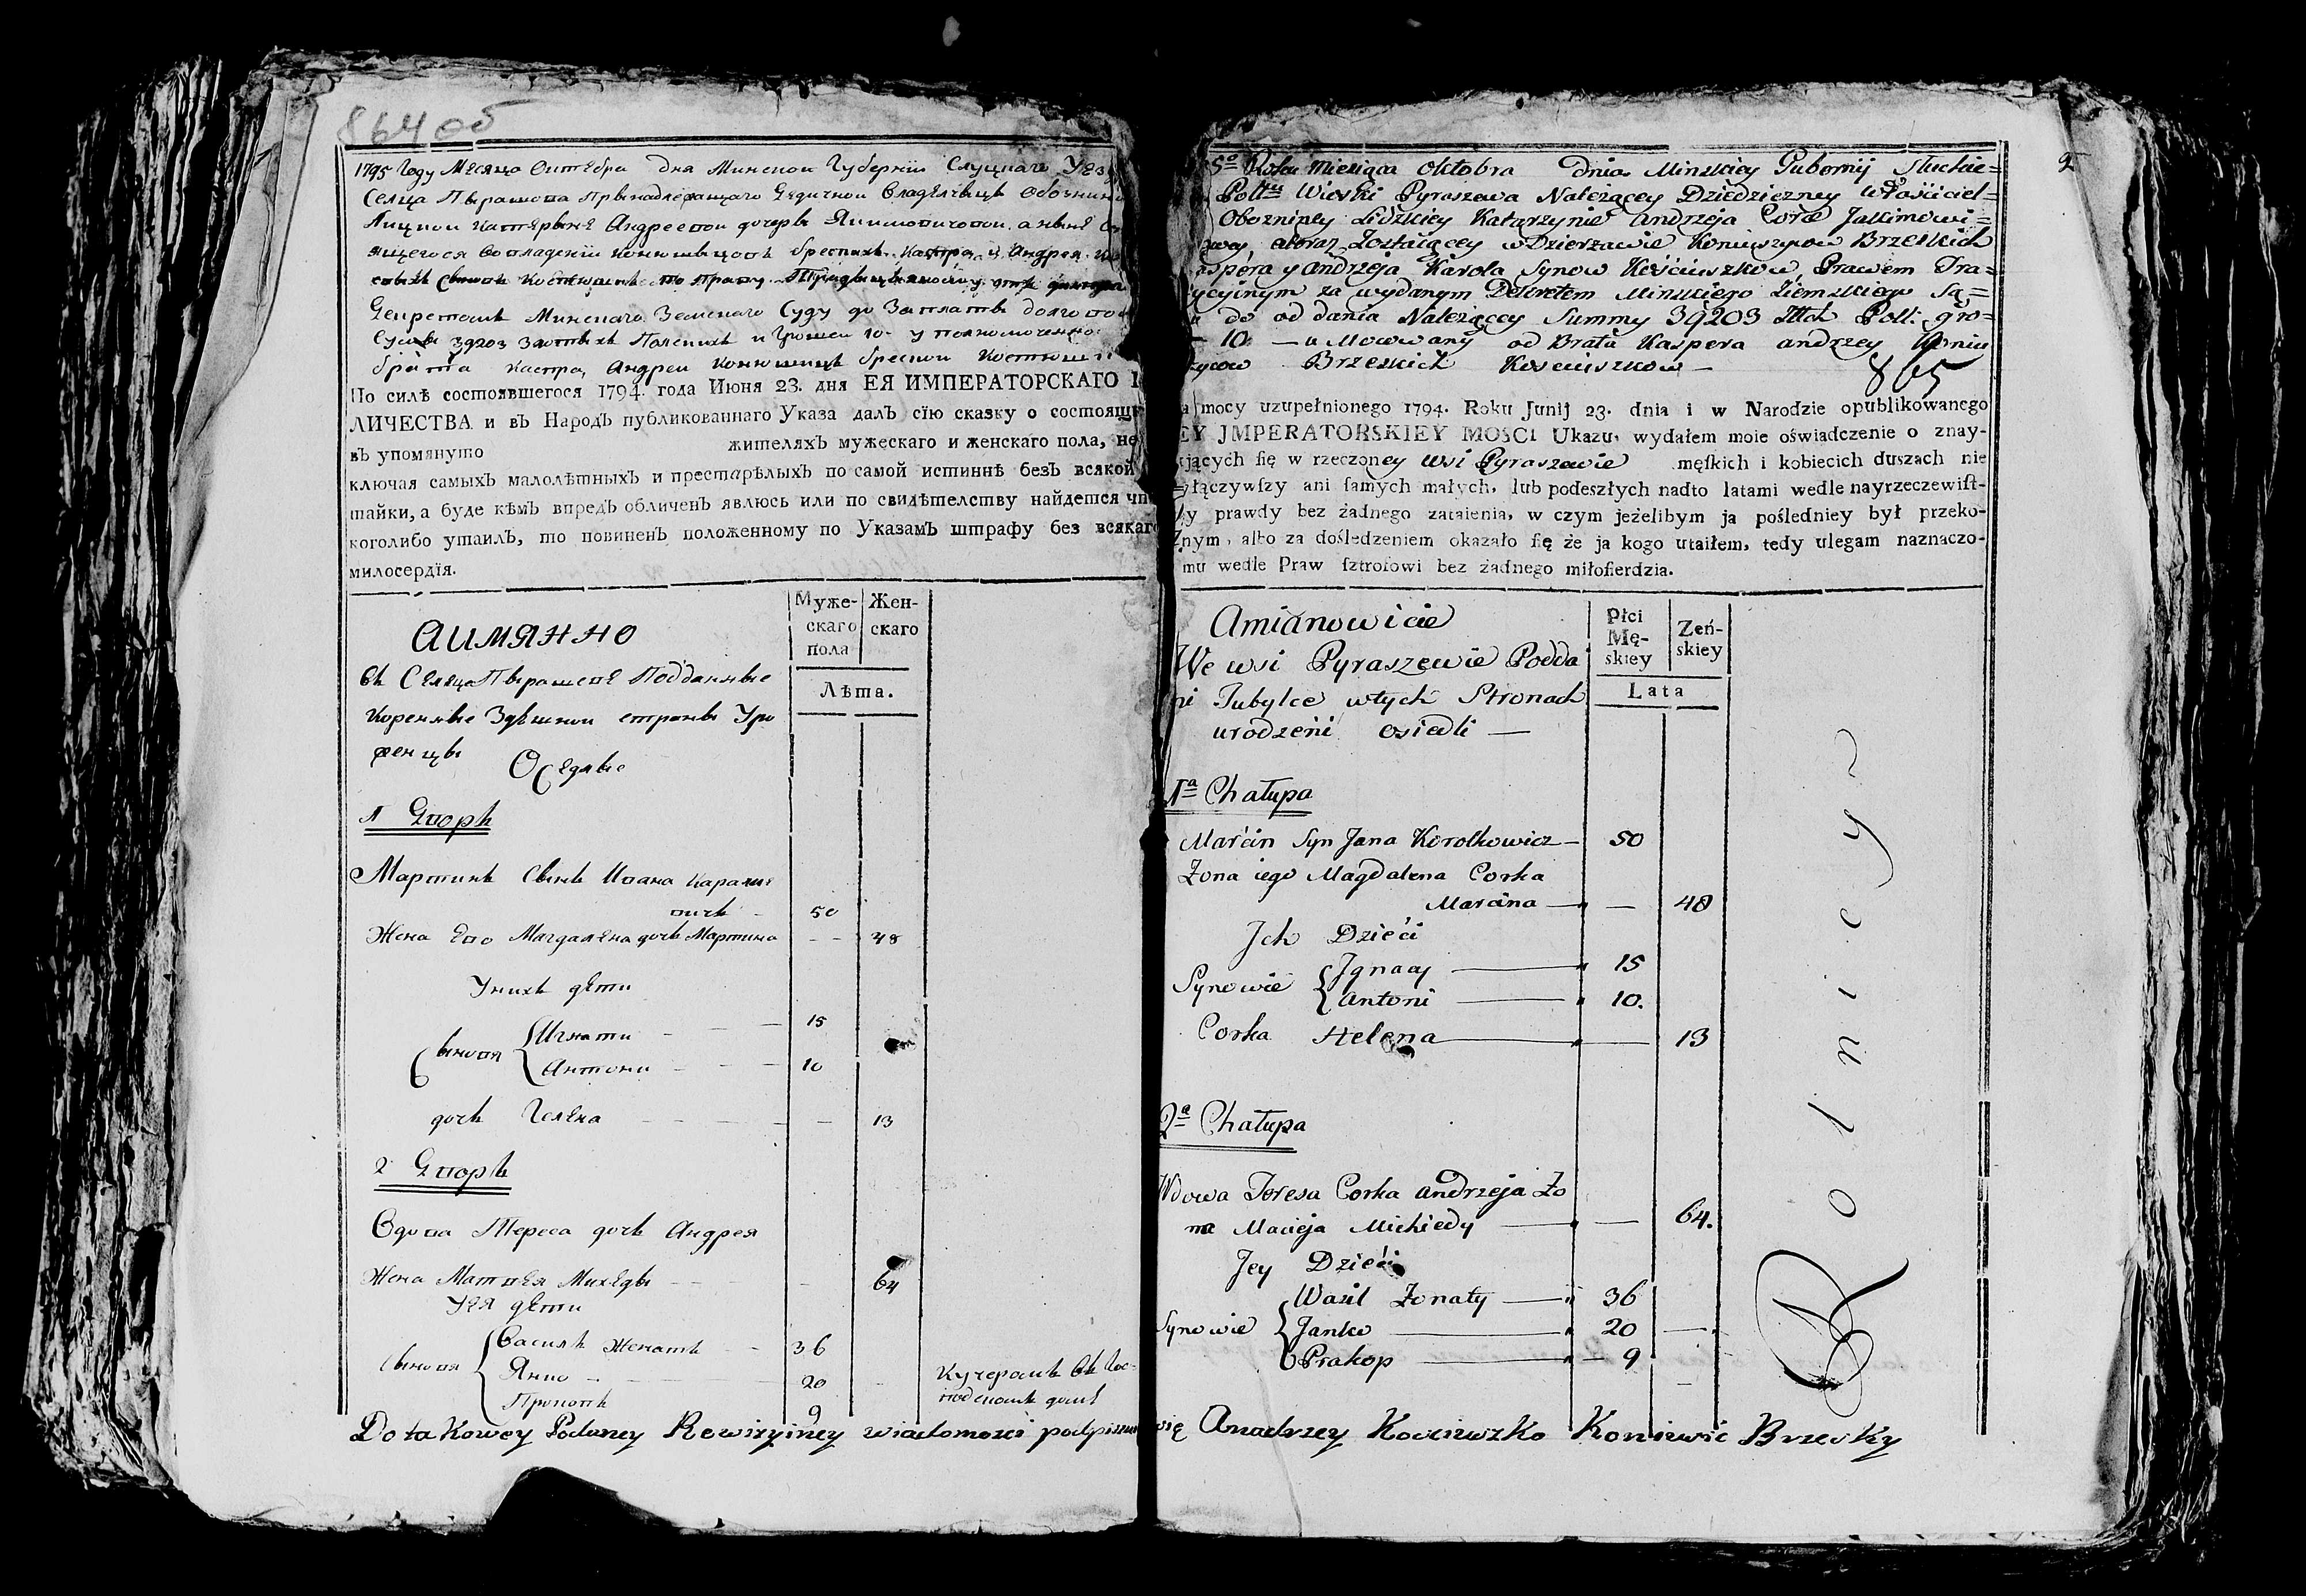 864 об
1795 Году Месяца Октебра дня Минской Губернии Слуцкаго Уез
Селца Пырашева Принадлежащаго Дедичной Владелицы Обозничи
Лицкой Катярыне Андреевой дочеры Якимовичовой, а ныне
ящегося во владении Конюшыцовъ брескихъ Каспра и Андрея
Декретомъ Минскаго Земского Суду до Заплаты долговой
Сумы 39203 Злотыхъ Полскихъ и Грошей 10 уполномоченной
брата Каспра Андрей Конюшицъ брески Костюшко
По силѣ состоявшегося 1794. года Июня 23. дня ЕЯ ИМПЕРАТОРСКАГО
ЛИЧЕСТВА и въ Народъ публикованнаго Указа далъ сїю сказку о состоящ
въ упомянуто жителяхъ мужескаго и женскаго пола, не
ключая самыхъ малолѣтныхъ и престарѣлыхъ по самой истиннѣ безъ всякой
тайки, а буде кѣмъ впредъ обличенъ явлюсь или по свидѣтелству найдется что
коголибо утаилъ, то повиненъ положенному по Указамъ штрафу без всякаго
милосердїя.
Муже-скаго пола Жен-скаго
Лѣта.
Аимянно
въ Селце Пырашеве Подданные
Коренные Здешной страны Уро
женцы
Оседлые
1 Дворъ
Мартинъ Сынъ Ивана Каралке
вичъ - 50
Жена Ево Магдалена дочь Мартина - - 48
Унихъ дети
Сыновя { Игнати - - - 15
Антони - - - 10
дочь Гелена - - - - - 13
2 Дворъ
Вдова Тереса дочь Андрея
Жена Матвея Михеды - - - 64
Уея дети
Сыновя { Василь Женатъ - - 36
Янко - - 20 - Кучеромъ въ Гос-
Прокопъ 9 подскомъ доме
Do takowey Podaney Rewizyiney wiadomosci podpisuie
2
5o Roku Miesiąca Oktobra Dnia Minskiey Gubernij Słuckie=
Pottu Wioski Pyraszewa Należącey Dziedziczney Właściciel=
Obozniney Lidzkiey Katarzynie Andrzeja Corce Jakimowi=
zwey a teraz Zostaiącey w Dzierżawie Koniuszycow Brzeskich
aspera y Andrzeja Karola Synow Kościuszkow, Prawem Tra=
ycyinym za wydanym Dekretem Minskiego Ziemskiego Są=
u do od dania Należącey Summy 39203 Złtch Poll: gro=
10. — u Mocowany od Brata Kaspera Andrzey Koniu
zycow Brzeskich Kosciuszkow —
865
a mocy uzupełnionego 1794. Roku Junij 23. dnia i w Narodzie opublikowanego
EY JMPERATORSKIEY MOSCI Ukazu, wydałem moie oświadczenie o znay-
ujących się w rzeczoney wsi Pyraszewie męskich i kobiecich duszach nie
yłączywszy ani samych małych, lub podeszłych nadto latami wedle nayrzeczewist-
ey prawdy bez żadnego zataienia, w czym jeżelibym ja pośledniey był przeko-
nym, albo za dośledzeniem okazało się że ja kogo utaiłem, tedy ulegam naznaczo-
mu wedle Praw sztrofowi bez żadnego miłosierdzia.
Płci Mę-skiey Zeń-skiey
Lata
Amianowicie
We wsi Pyraszewie Podda
ni Tubylce w tych Stronach
urodzeni osiedli —
1a Chałupa
Marcin Syn Jana Korolkowicz — 50
Żona iego Magdalena Corka
Marcina — — 48
Jch Dzieci
Synowie { Jgnacy — 15
Antoni — 10.
Corka Helena — — 13
2a Chałupa
Wdowa Teresa Corka Andrzeja Żo
na Macieja Michiedy — — 64.
Jey Dzieci
Synowie { Wasil Żonaty — 36
Janko — 20 —
Prakop — 9
Rolnicy
się Anadrzey Kociuszko Koniuszic Brzesky